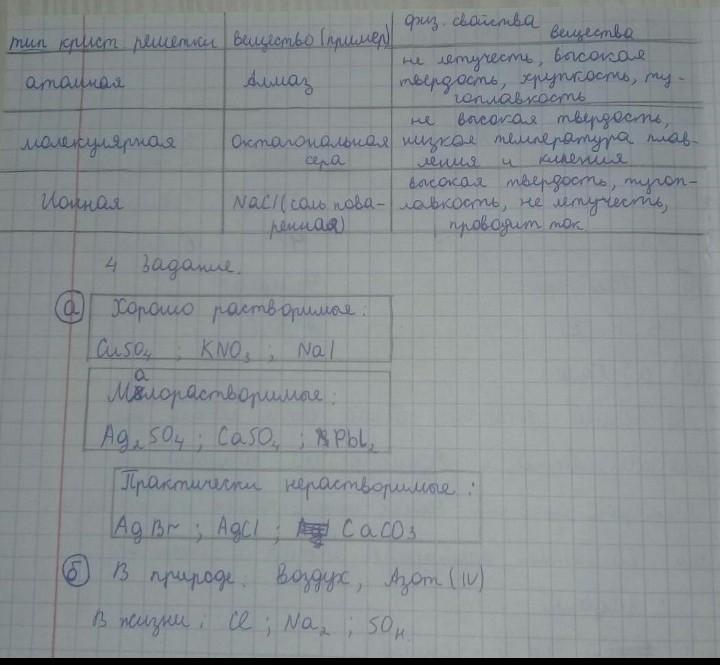 тип крист. решетки вещество (пример) физ. свойства вещества
атомная Алмаз не летучесть, высокая твердость, хрупкость, ту-
гоплавкость
молекулярная Октагональная сера не высокая твердость, низкая температура плав-
ления и кипения
Ионная NaCl (соль пова-
ренная) высокая твердость, тугоп-
лавкость, не летучесть, проводит ток
4 Задание.
а Хорошо растворимая:
CuSO4 ; KNO3 ; NaI
Малорастворимые:
Ag2SO4 ; CaSO4 ; PbI2
Практически нерастворимые:
AgBr ; AgCl ; CaCO3
б В природе: Воздух, Азот (IV)
В жизни: Cl ; Na2 ; SOн.